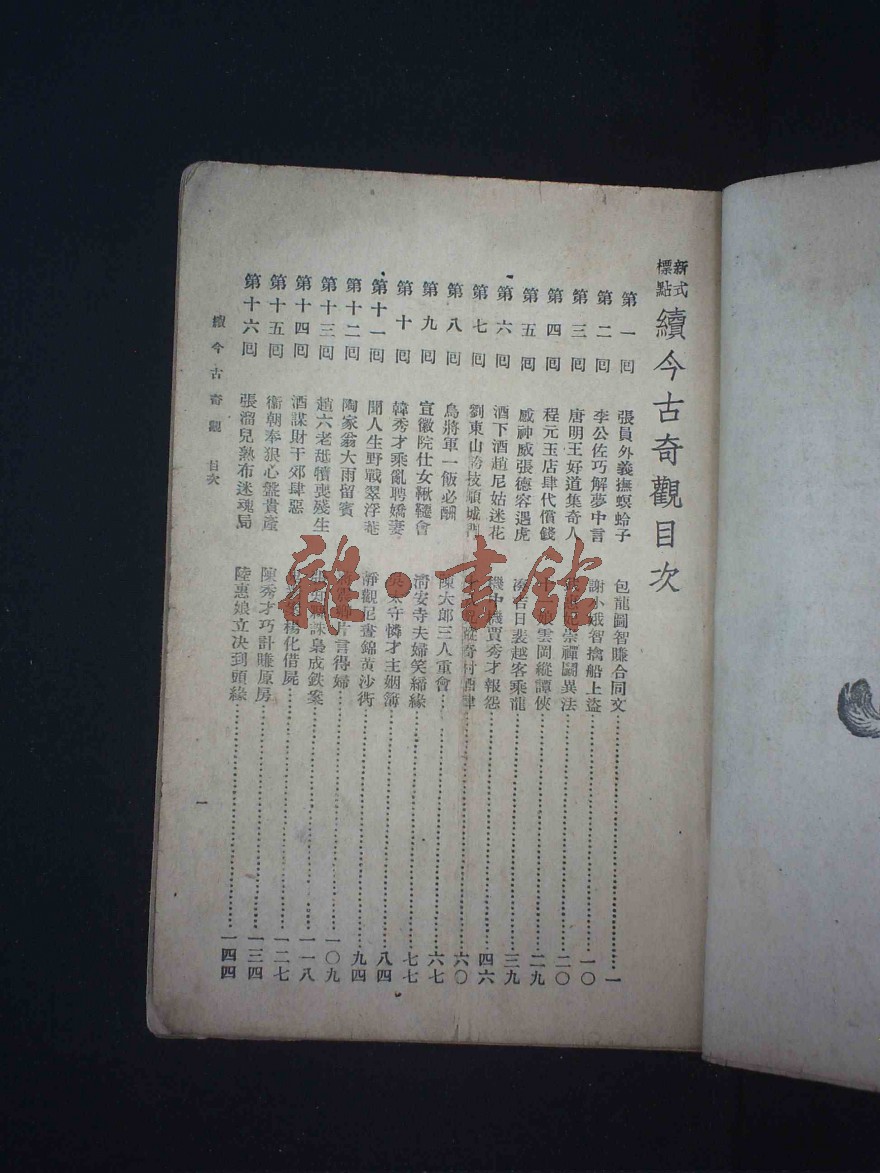 新式標點 續今古奇觀目次
第一回 張員外義撫螟蛉子 包龍圖智賺合同文 一
第二回 李公佐巧解夢中言 謝小娥智擒船上盜 一〇
第三回 唐明王好道集奇人 崇禪鬭異法 二〇
第四回 程元玉店肆代償錢 雲岡縱譚俠 二九
第五回 感神威張德容遇虎 湊吉日裴越客乘龍 三九
第六回 酒下酒趙尼姑迷花 機中機賈秀才報怨 四六
第七回 劉東山誇技順城門 村酒肆 六〇
第八回 烏將軍一飯必酬 陳大郎三人重會 六七
第九回 宣徽院仕女鞦韆會 清安寺夫婦笑緣 七七
第十回 韓秀才乘亂聘嬌妻 吳太守憐才主姻簿 八四
第十一回 聞人生野戰翠浮菴 靜觀尼晝錦黃沙衖 九四
第十二回 陶家翁大雨留賓 片言得婦 一〇九
第十三回 趙六老舐犢喪殘生 誅梟成鉄案 一一八
第十四回 酒謀財于郊肆惡 楊化借屍 一二七
第十五回 衞朝奉狠心盤貴產 陳秀才巧計賺原房 一三四
第十六回 張溜兒熟布迷魂局 陸惠娘立决到頭緣 一四四
續今古奇觀 目次
一
雜·書館